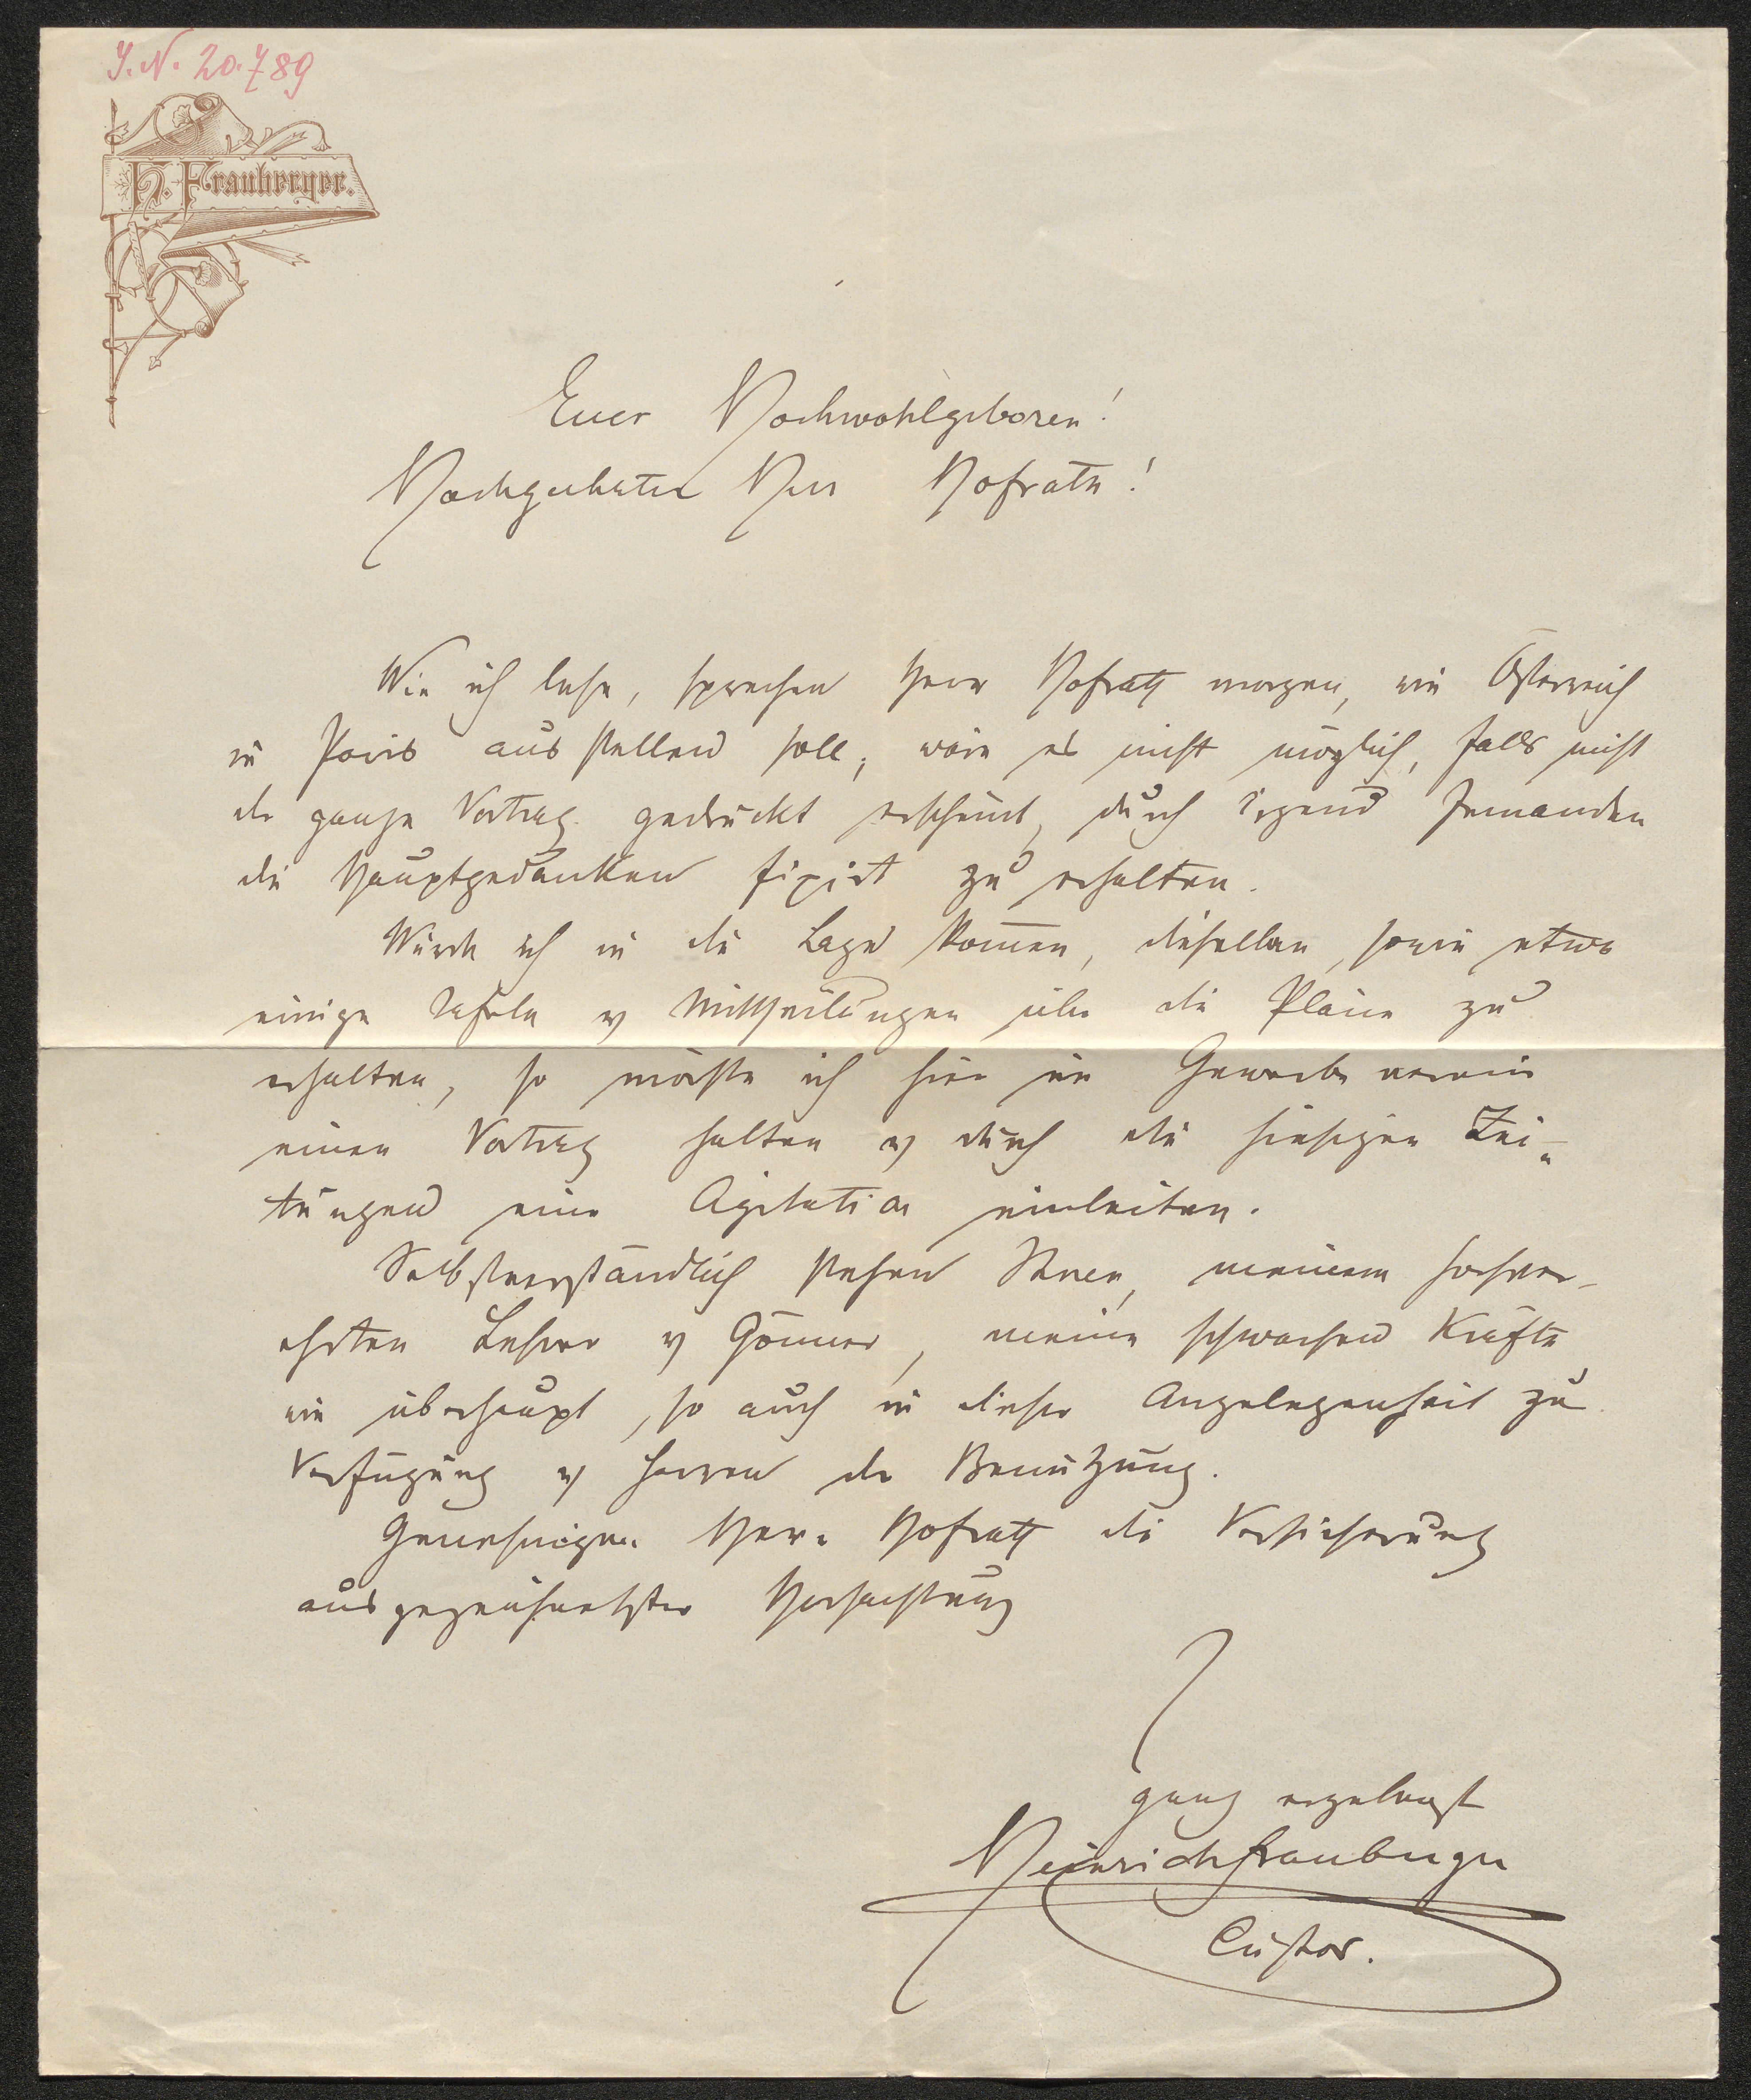 J.N. 20.789
H. Frauberger.
Euer Hochwohlgeboren!
Hochgeehrter Herr Hofrath!
Wie ich lese, sprechen Herr Hofrath morgen, wie Österreich
in Paris ausstellen soll; wäre es nicht möglich, falls nicht
der ganze Vortrag gedruckt erscheint, durch irgend Jemanden
die Hauptgedanken fixirt zu erhalten.
Würde ich in die Lage kom̅en, dieselben, sowie etwa
einige Tafeln u Mittheilungen über die Pläne zu
erhalten, so möchte ich hier im Gewerbeverein
einen Vortrag halten u durch die hiesigen Zei-
tungen eine Agitation einleiten.
Selbstverständlich stehen Ihnen, meinem hochver-
ehrten Lehrer u Gönner, meine schwachen Kräfte
wie überhaupt, so auch in dieser Angelegenheit zu
Verfügung u harren der Benützung.
Genehmigen Herr Hofrath die Versicherung
ausgezeichnetster Hochachtung
ganz ergebenst
Heinrich Frauberger
Custos.